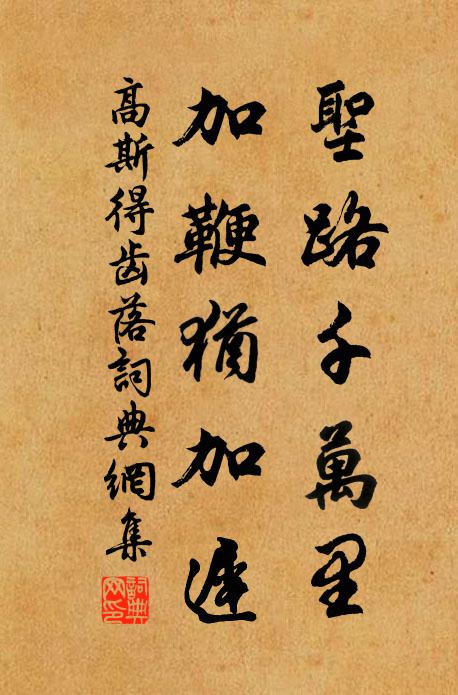 聖路千萬里
加鞭猶加遲
高斯得齒落詞典網集
詞典
网印